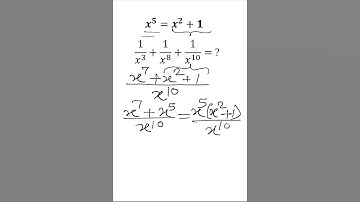 x⁵ = x² + 1
1/x³ + 1/x⁸ + 1/x¹⁰ = ?
(x⁷ + x² + 1)/x¹⁰
(x⁷ + x⁵)/x¹⁰ = x⁵(x²+1)/x¹⁰